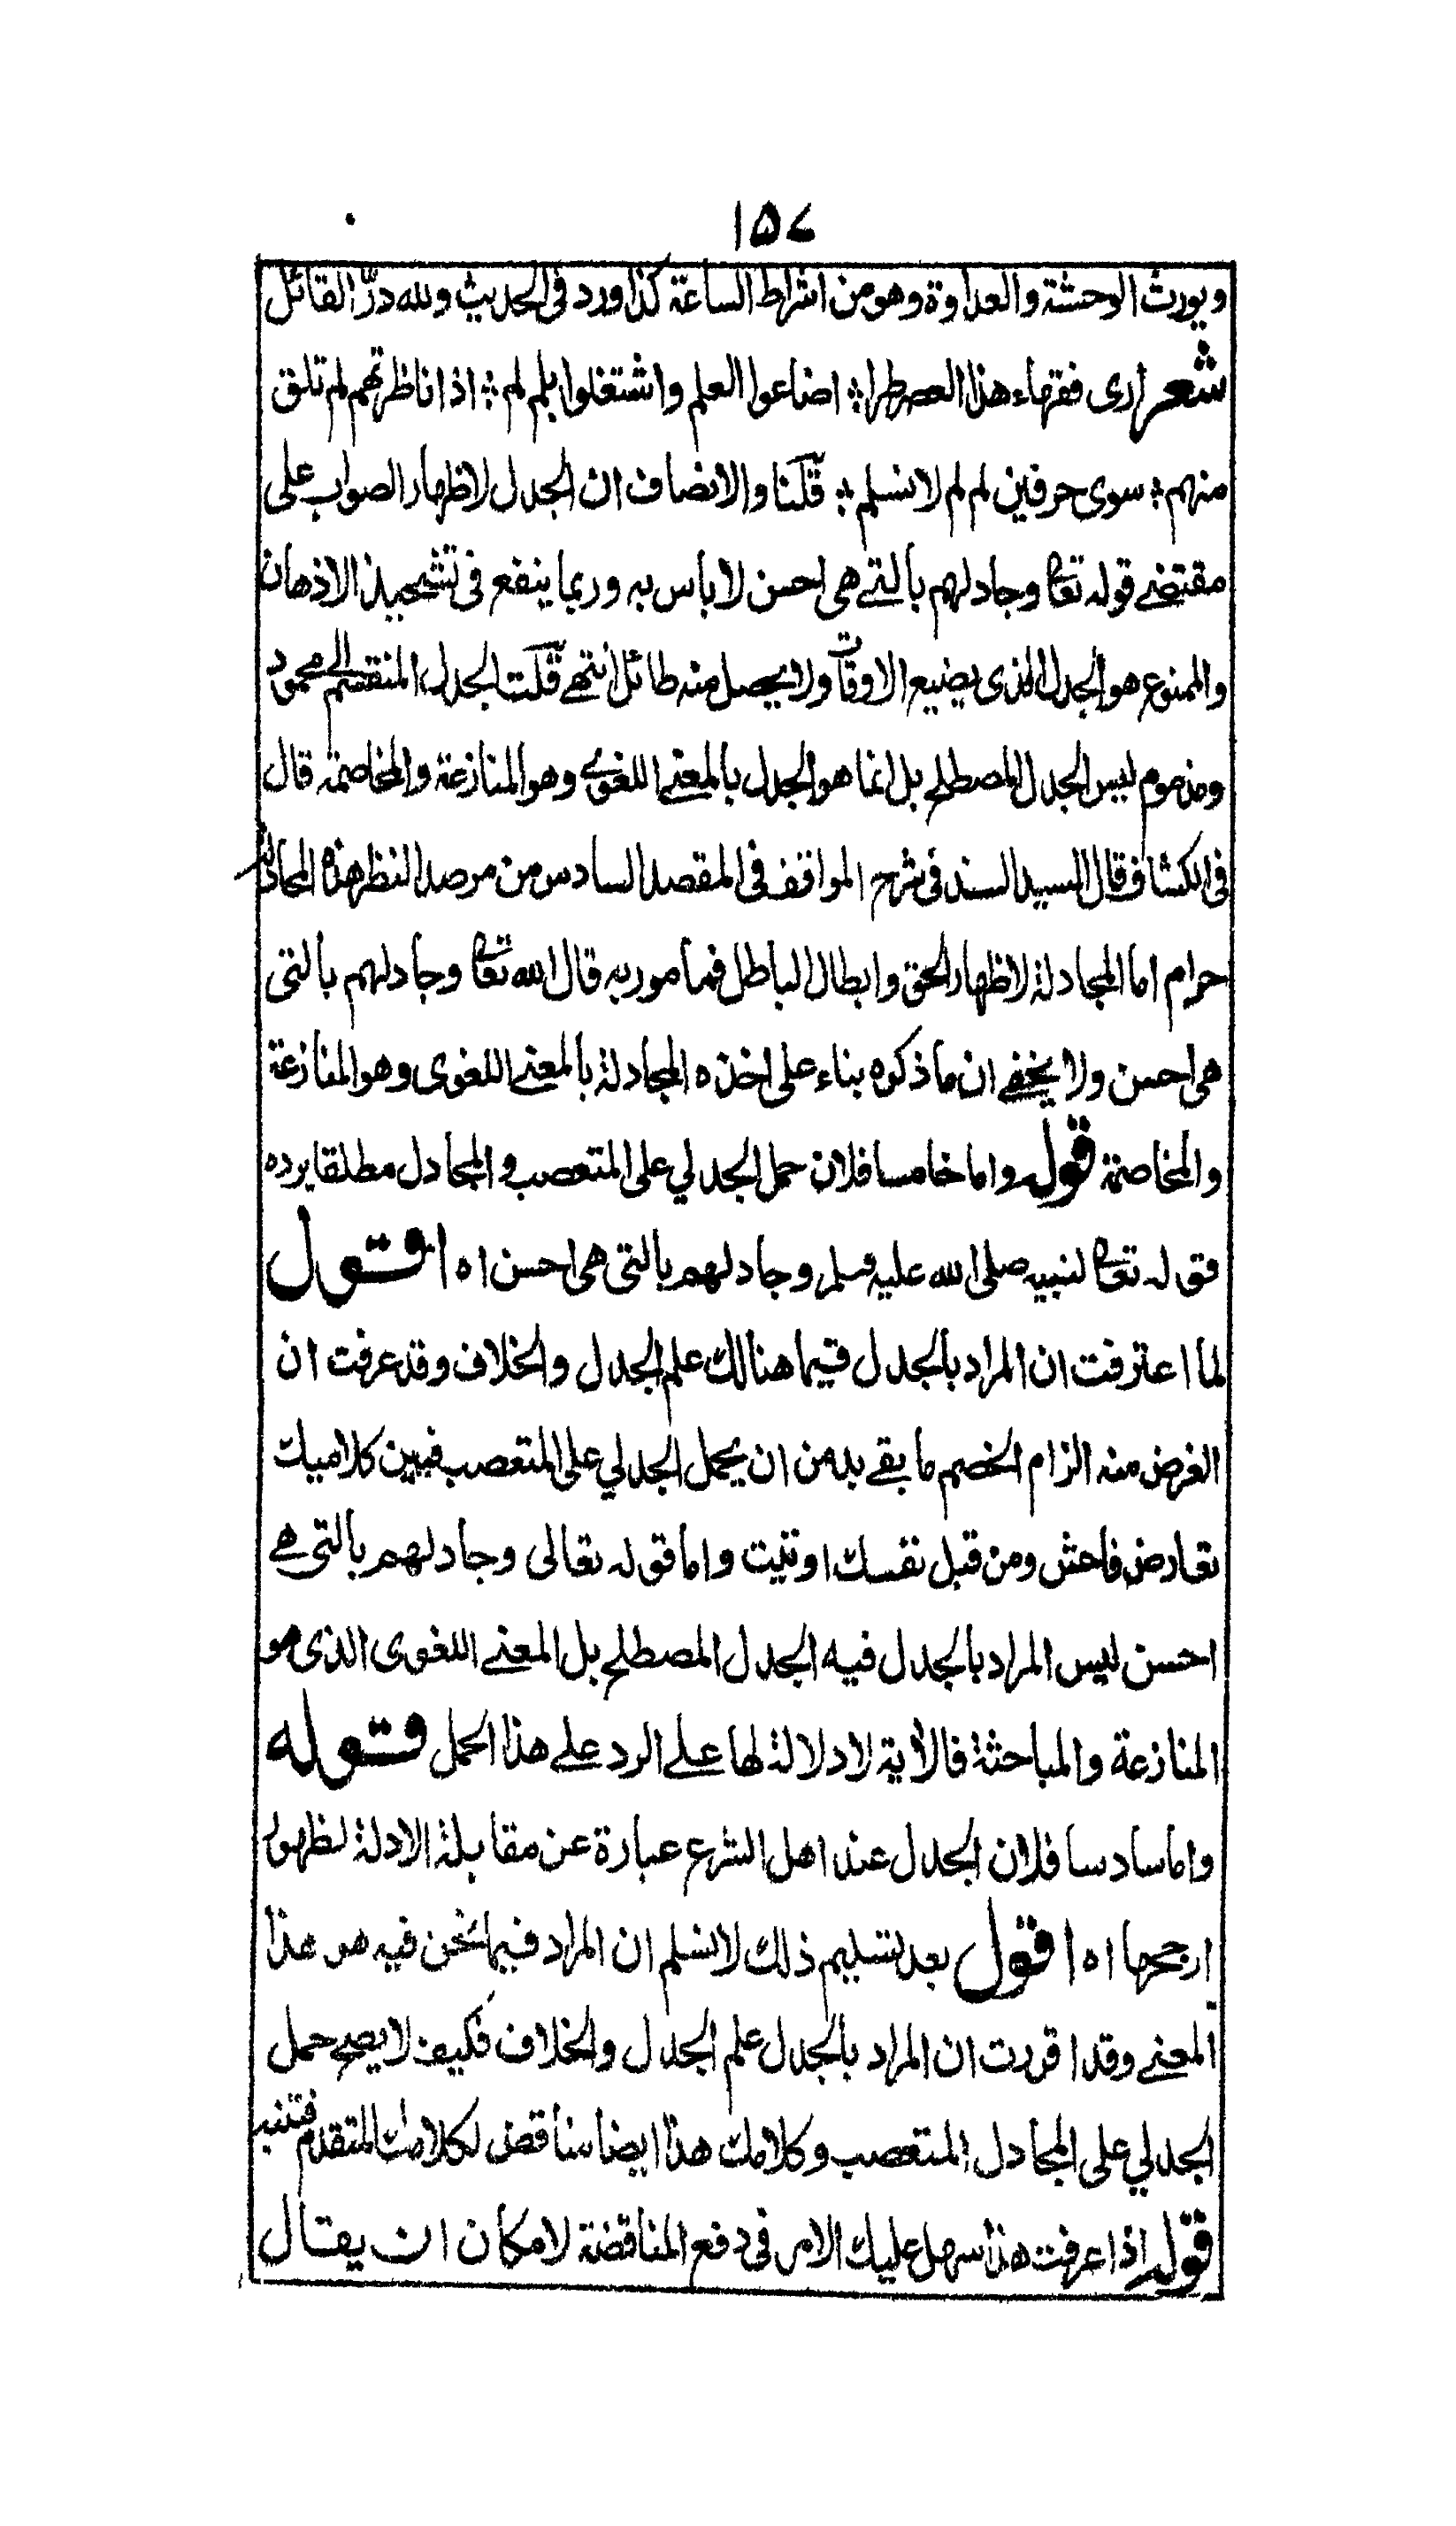 ١٥٧
ويورث الوحشة والعداوة وهو من اشراط الساعة كذا ورد فى الحديث ولله درّ القائل
شعر ارى فقهاء هذا العصر طرا ؛ اضاعوا العلم واشتغلوا بلم لم ؛ اذا ناظرتهم لم تلق
منهم ؛ سوى حرفين لم لم لا نسلم ؛ قلنا والانصاف ان الجدل لاظهار الصواب على
مقتضے قوله تعا وجادلهم بالتے هى احسن لا باس به وربما ينفع فى تشحيذ الاذهان
والممنوع هو الجدل الذى يضيع الاوقات ولا يحصل منه طائل انتهے قلت الجدل المنقسم الى محمود
ومذموم ليس الجدل المصطلح بل انما هو الجدل بالمعنے اللغوے وهو المنازعة والمخاصمة قال
فى الكشاف قال السيد السند فى شرح المواقف فى المقصد السادس من مرصد النظر هذه المجادلة
حرام اما المجادلة لاظهار الحق وابطال الباطل فمامور به قال الله تعا وجادلهم بالتى
هى احسن ولا يخفے ان ما ذكره بناء على اخذه المجادلة بالمعنے اللغوى وهو المنازعة
والمخاصمة قوله واما خامسا فلان حمل الجدلي على المتعصب والمجادل مطلقا يرده
قوله تعا لنبيه صلى الله عليه وسلم وجادلهم بالتى هى احسن اه اقول
لما اعترفت ان المراد بالجدل فيما هنالك علم الجدل والخلاف وقد عرفت ان
الغرض منه الزام الخصم ما بقے بد من ان يحمل الجدلي على المتعصب فبين كلاميك
تعارض فاحش ومن قبل نفسك اوتيت واما قوله تعالى وجادلهم بالتى هے
احسن ليس المراد بالجدل فيه الجدل المصطلح بل المعنے اللغوى الذى هو
المنازعة والمباحثة فالأية لا دلالة لها علے الرد علے هذا الحمل قوله
واما سادسا فلان الجدل عند اهل الشرع عبارة عن مقابلة الادلة لظهور
ارجحها اه اقول بعد تسليم ذلك لا نسلم ان المراد فيما نحن فيه هو هذا
المعنے وقد اقررت ان المراد بالجدل علم الجدل والخلاف فكيف لا يصح حمل
الجدلي على المجادل المتعصب وكلامك هذا ايضا مناقض لكلامك المتقدم فتنبه
قوله اذا عرفت هذا سهل عليك الامر فى دفع المناقضة لامكان ان يقال